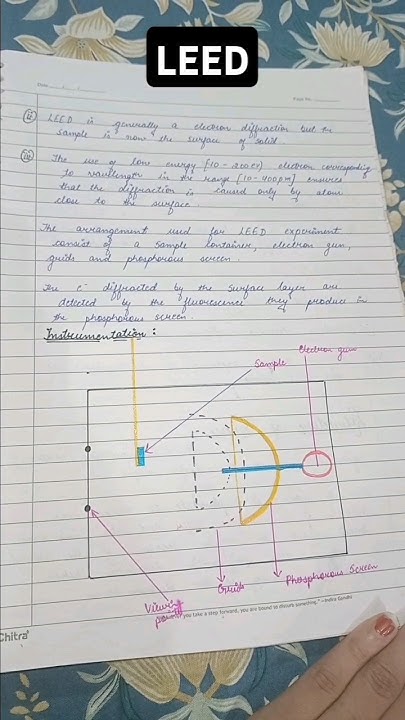 LEED
Date
Page No.
(ii) LEED is generally a electron diffraction but the
sample is now the surface of solid.
(iii) The use of low energy [10-200eV] electron corresponding
to wavelength in the range [10-400pm] ensures
that the diffraction is caused only by atom
close to the surface.
The arrangement used for LEED experiment
consist of a sample container, electron gun,
grids and phosphorous screen.
The e⁻ diffracted by the surface layer are
detected by the fluorescence they produce in
the phosphorous screen.
Instrumentation:
Electron gun
Sample
Phosphorous Screen
Grids
Viewing
point
you take a step forward, you are bound to disturb something." -Indira Gandhi
Chitra